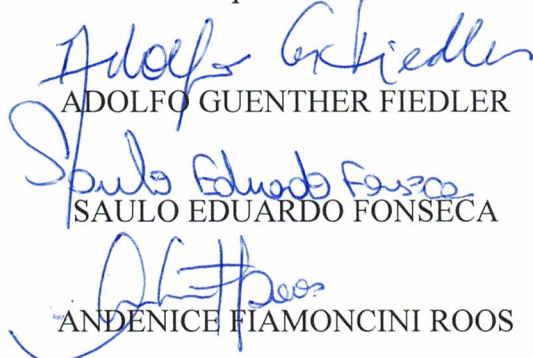 Adolfo G. Fiedler
ADOLFO GUENTHER FIEDLER
Saulo Eduardo Fonseca
SAULO EDUARDO FONSECA
Roos
ANDENICE FIAMONCINI ROOS